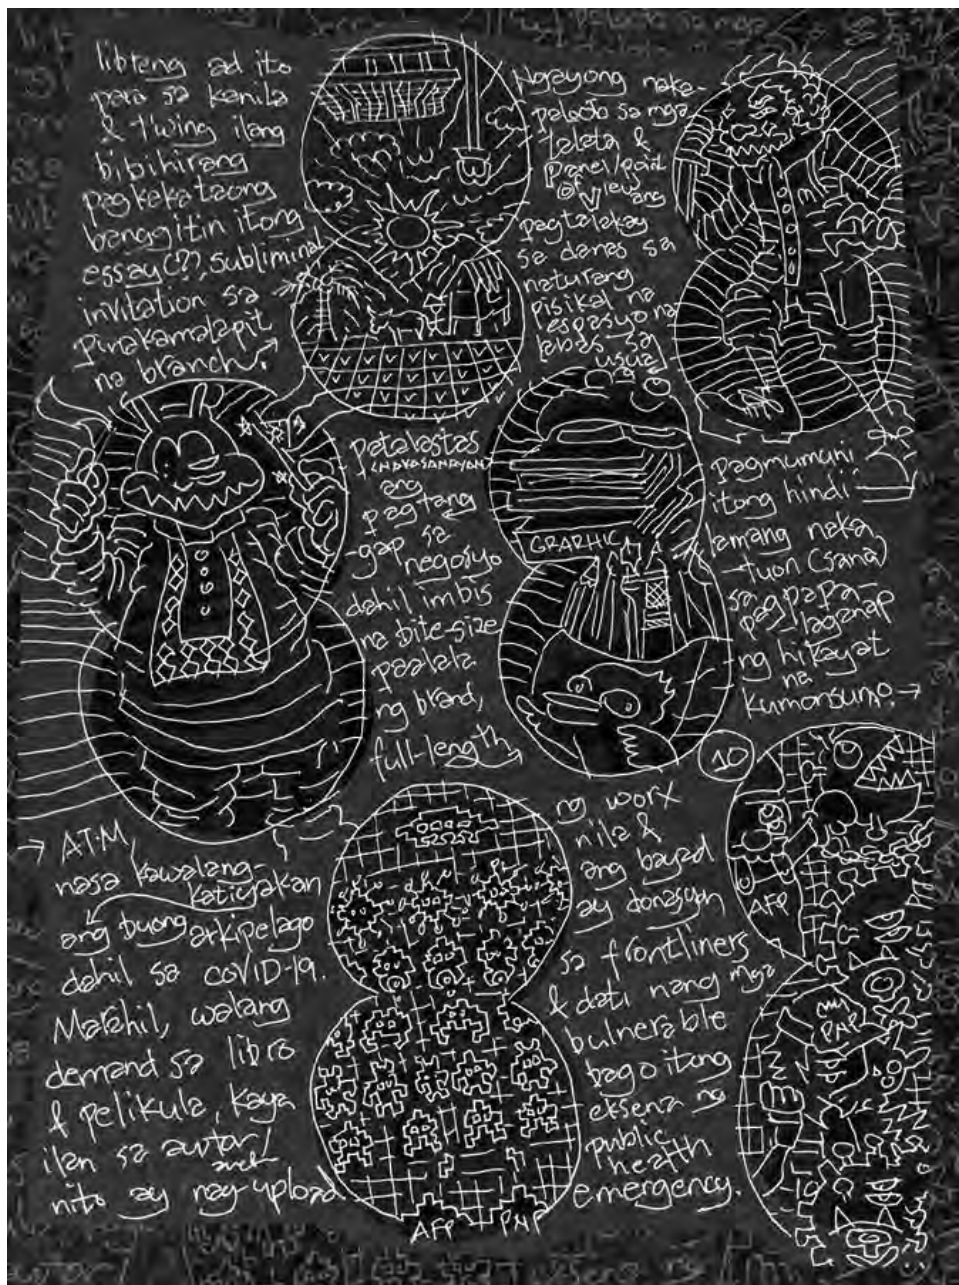 libreng ad ito
para sa kanila
& t'wing ilang
bibihirang
pagkakataong
banggitin itong
essay(?), subliminal
invitation sa
pinakamalapit
na branch.
Ngayong naka-
paloob sa mga
talata &
panel/point
of view ang
pagtalakay
sa danas sa
naturang
pisikal na
espasyo na
labas sa
usual
patalastas
(NAKASANAYAN)
ang
pagtang
-gap sa
negosyo
dahil imbis
na bite-size
paalala
ng brand,
full-length
GRAPHIC
pagmumuni
itong hindi
lamang naka
-tuon (sana)
sa pagpapa-
-laganap
ng hikayat
na
kumonsumo.
10
ATM,
nasa kawalang-
katiyakan
ang buong arkipelago
dahil sa COVID-19.
Marahil, walang
demand sa libro
& pelikula, kaya
ilan sa awtor/
nito ay nag-upload
AFP PNP
ng worx
nila &
ang bayad
ay donasyon
sa frontliners
& dati nang mga
bulnerable
bago itong
eksena ng
public
health
emergency.
AFP
PNP